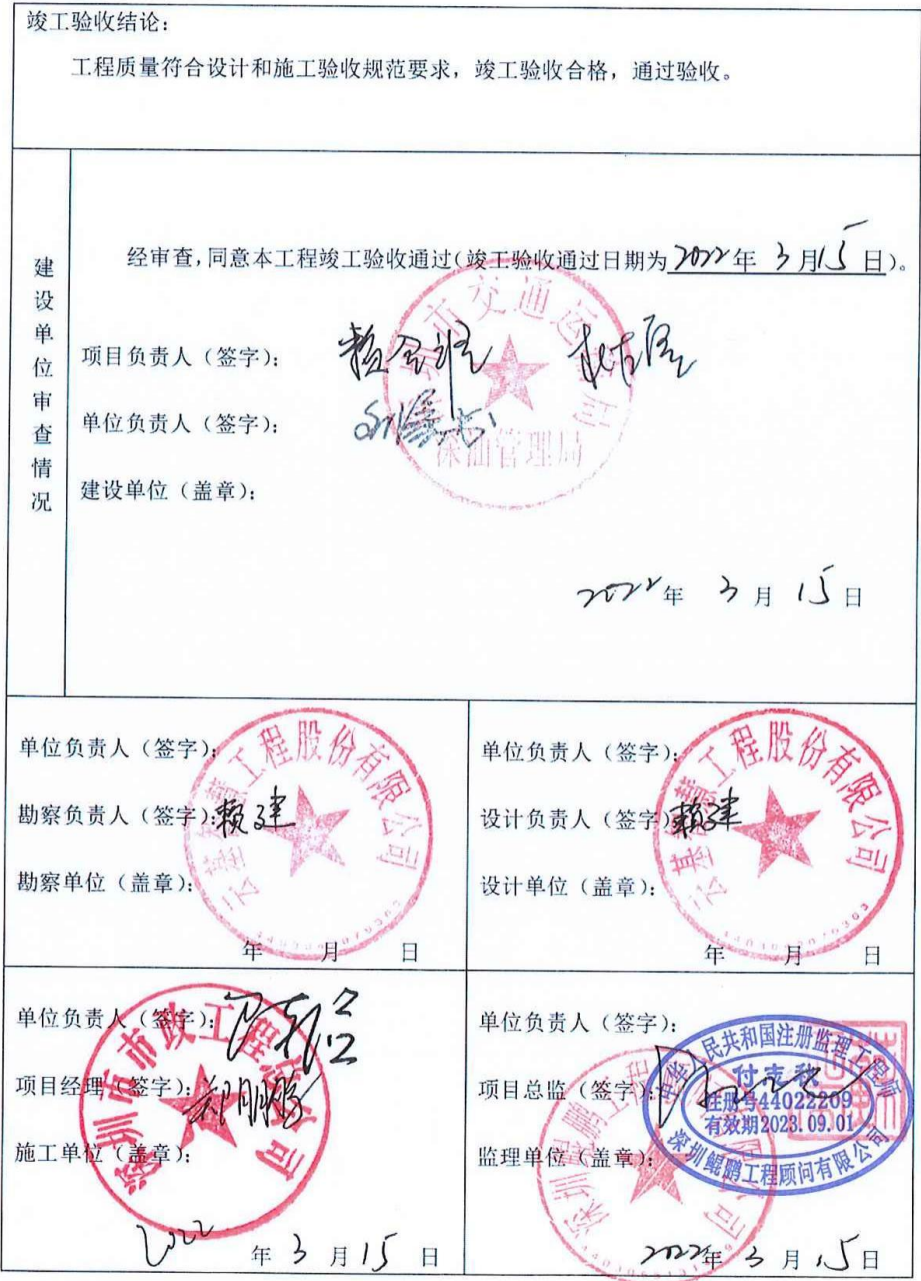 竣工验收结论:
工程质量符合设计和施工验收规范要求，竣工验收合格，通过验收。
建设单位审查情况
经审查,同意本工程竣工验收通过(竣工验收通过日期为2022年 3月15日)。
项目负责人（签字）:
单位负责人（签字）:
建设单位（盖章）:
深圳市交通运输局
深汕管理局
2022年 3月15日
单位负责人（签字）:
勘察负责人（签字）:赖建
勘察单位（盖章）:
云基智慧工程股份有限公司
年 月 日
单位负责人（签字）:
设计负责人（签字）赖建
设计单位（盖章）:
云基智慧工程股份有限公司
年 月 日
单位负责人（签字）:
项目经理（签字）:
施工单位（盖章）:
深圳市市政工程
公司
2022年 3月15日
单位负责人（签字）:
项目总监（签字）:
监理单位（盖章）:
深圳鲲鹏工程顾问有限公司
中华人民共和国注册监理工程师
注册号44022209
有效期2023.09.01
深圳鲲鹏工程顾问有限公司
2022年 3月15日